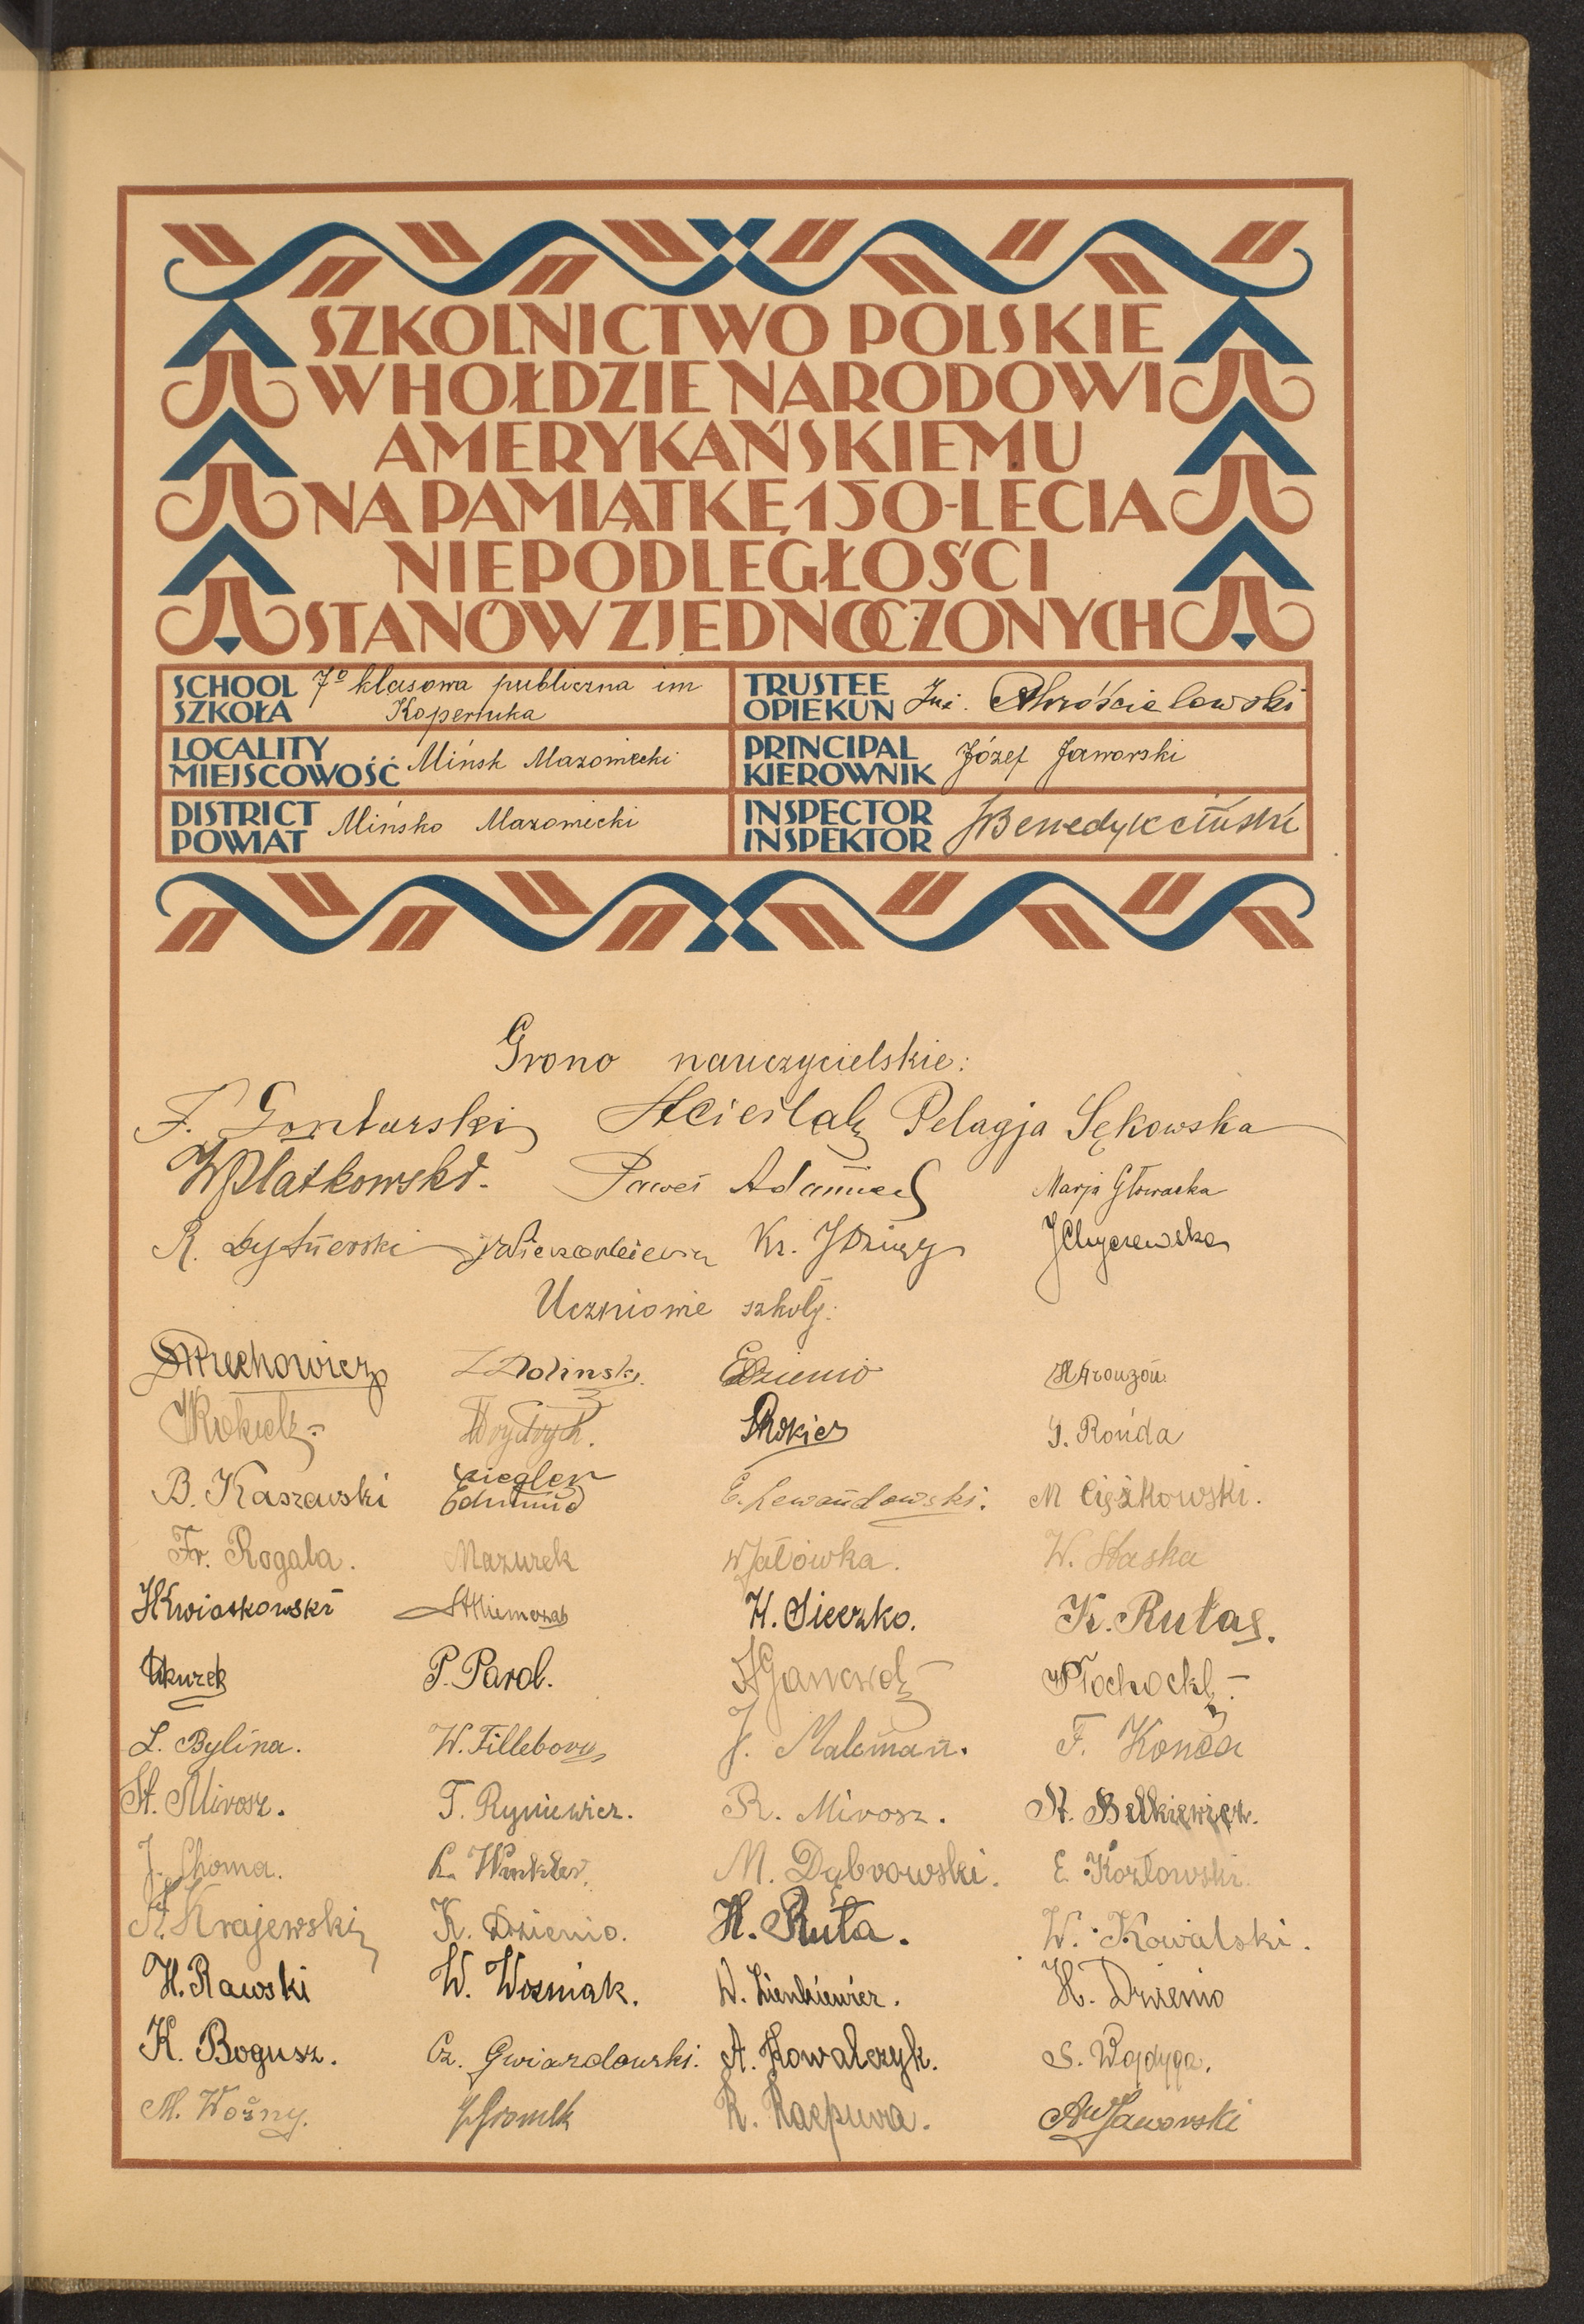 SZKOLNICTWO POLSKIE
W HOŁDZIE NARODOWI
AMERYKAŃSKIEMU
NA PAMIĄTKĘ 150-LECIA
NIEPODLEGŁOŚCI
STANÓW ZJEDNOCZONYCH
SCHOOL SZKOŁA 7º klasowa publiczna im Kopernika
TRUSTEE OPIEKUN Chróścielowski
LOCALITY MIEJSCOWOŚĆ Mińsk Mazowiecki
PRINCIPAL KIEROWNIK Józef Jaworski
DISTRICT POWIAT Mińsko Mazowiecki
INSPECTOR INSPEKTOR Benedykciński
Grono nauczycielskie:
F. Gontarski St Cieślak Pelagja Sękowska
W Płatkowski. Paweł Adamiec Marja Głowacka
R. Kr.
Uczniowie szkoły:
Z Dolinski. E Dzienio
Rokicki G. Rońda
B. Kaszewski Ziegler Edmund E. Lewandowski. M Ciężkowski.
Fr. Rogala. Mazurek W Jałówka. W. Staska
H Kwiatkowski H. Sieczko. K. Rutas.
Ukurek P. Parol. Płochocki
L. Bylina. W. Filleborn J. Maleman. F. Konca
St. Mirosz. T. Ryniewicz. R. Mirosz. St. Bełkiewicz.
J. Shoma. L. Winkler. M. Dąbrowski. E. Kozłowski.
St. Krajewski K. Dzienio. H. Ruta. W. Kowalski.
H. Rawski W. Wozniak. W. Zienkiewicz. H. Dzienio
K. Bogusz. Cz. Gwiazdowski. A. Kowalczyk. S. Wojdyga.
M. Woźny. J Gromek K. Kacpura. A W Jaworski